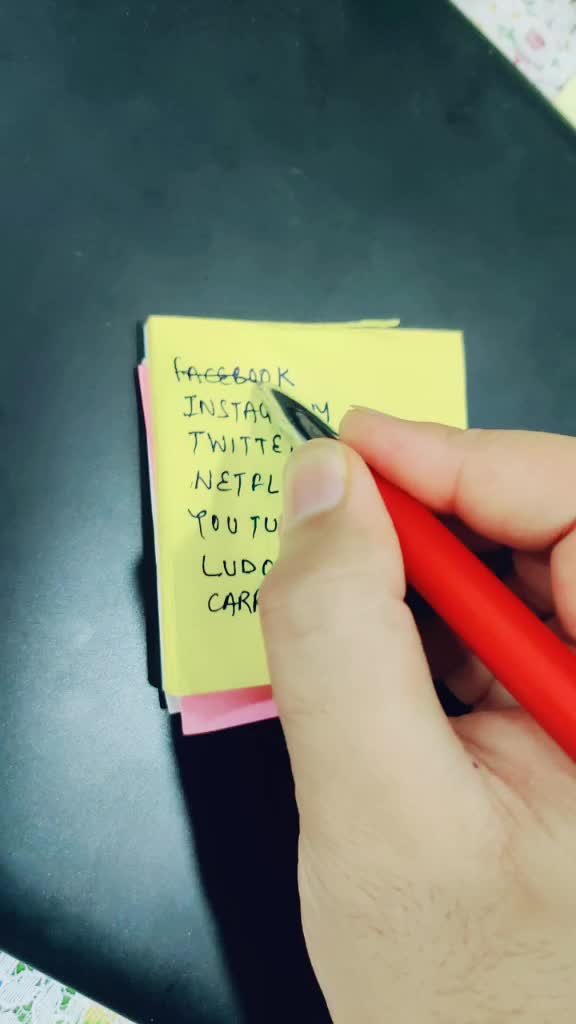 FACEBOOK
INSTAG M
TWITTE
NETFL
YOUTU
LUDO
CAR